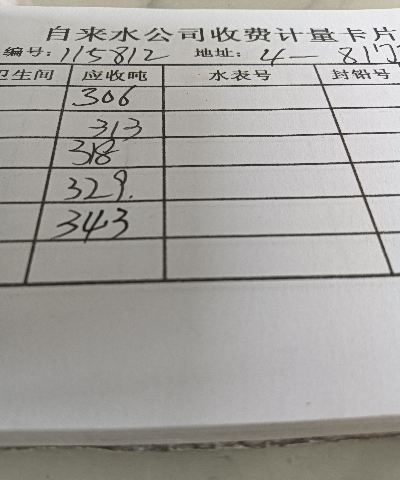 自来水公司收费计量卡片
编号:115812 地址: 4—81门
卫生间 应收吨 水表号 封铅号
306
313
318
329.
343